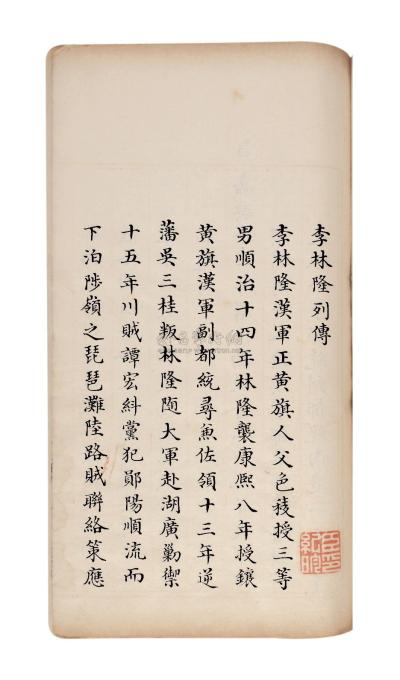 李林隆列傳
李林隆漢軍正黃旗人父色稜授三等
男順治十四年林隆襲康熙八年授鑲
黃旗漢軍副都統尋兼佐領十三年逆
藩吳三桂叛林隆隨大軍赴湖廣勦禦
十五年川賊譚宏糾黨犯鄖陽順流而
下泊陟嶺之琵琶灘陸路賊聯絡策應